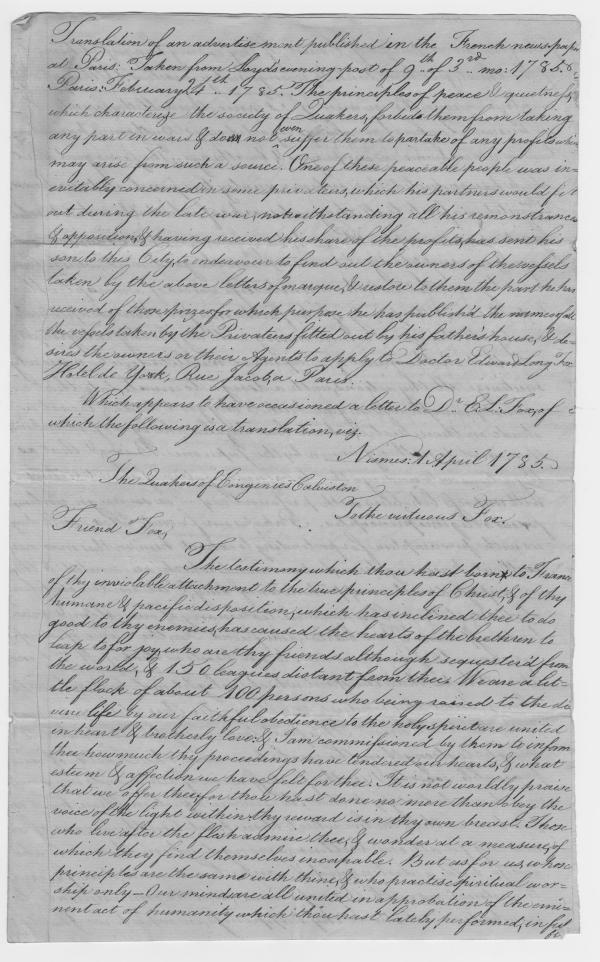 Translation of an advertisement published in the French news-paper
at Paris: Taken from Loyds evening-post of 9th of 3rd mo: 1785.
Paris: February 24th 1785. The principles of peace & quietness,
which characterize the society of Quakers, forbids them from taking
any part in wars & do not even suffer them to partake of any profits which
may arise from such a source. One of these peaceable people was in=
evitably concerned in some privateers, which his partners would fit
out during the late war, notwithstanding all his remonstrances
& opposition, & having received his share of the profits, has sent his
son to this City, to endeavour to find out the owners of the vessels
taken by the above letters of marque, & restore to them the part he has
received of those prizes, for which purpose he has publish'd the names of all
the vessels taken by the Privateers fitted out by his father's house, & de=
sires the owners or their Agents to apply to Doctor Edward Long Fox
Hotel de York, Rue Jacob, a Paris.
Which appears to have occasioned a letter to Dr E. L. Fox, of
which the following is a translation, viz.
Nismes: 1 April 1785.
The Quakers of Congenies Calvisson
To the virtuous Fox.
Friend Fox,
The testimony which thou hast born to France
of thy inviolable attachment to the true principles of Christ, & of thy
humane & pacific disposition, which has inclined thee to do
good to thy enemies, has caused the hearts of the brethren to
leap for joy, who are thy friends although sequester'd from
the world, & 150 leagues distant from thee. We are a lit=
tle flock of about 100 persons who being raised to the di
vine life by our faithful obedience to the holy spirit are united
in heart & brotherly love: & I am commissioned by them to inform
thee how much thy proceedings have tendered our hearts, & what
esteem & affection we have felt for thee. It is not worldly praise
that we offer thee, for thou hast done no more than obey the
voice of the light within, thy reward is in thy own breast. Those
who live after the flesh admire thee, & wonder at a measure, of
which they find themselves incapable. But as for us, whose
principles are the same with thine, & who practise spiritual wor=
ship only – Our minds are all united in approbation of the emi=
nent act of humanity which thou hast lately performed, in ful